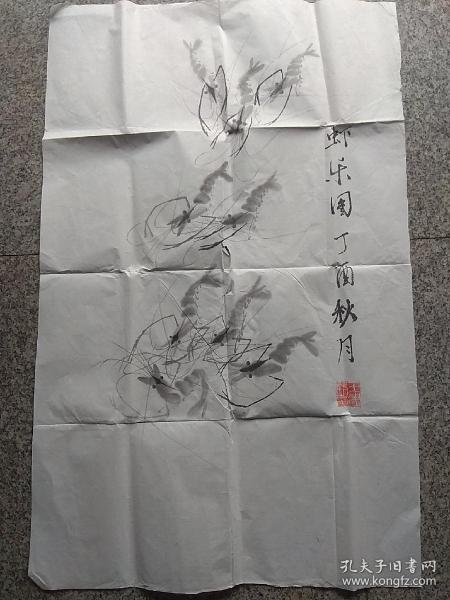 虾乐图丁酉秋月
孔夫子旧书网
www.kongfz.com